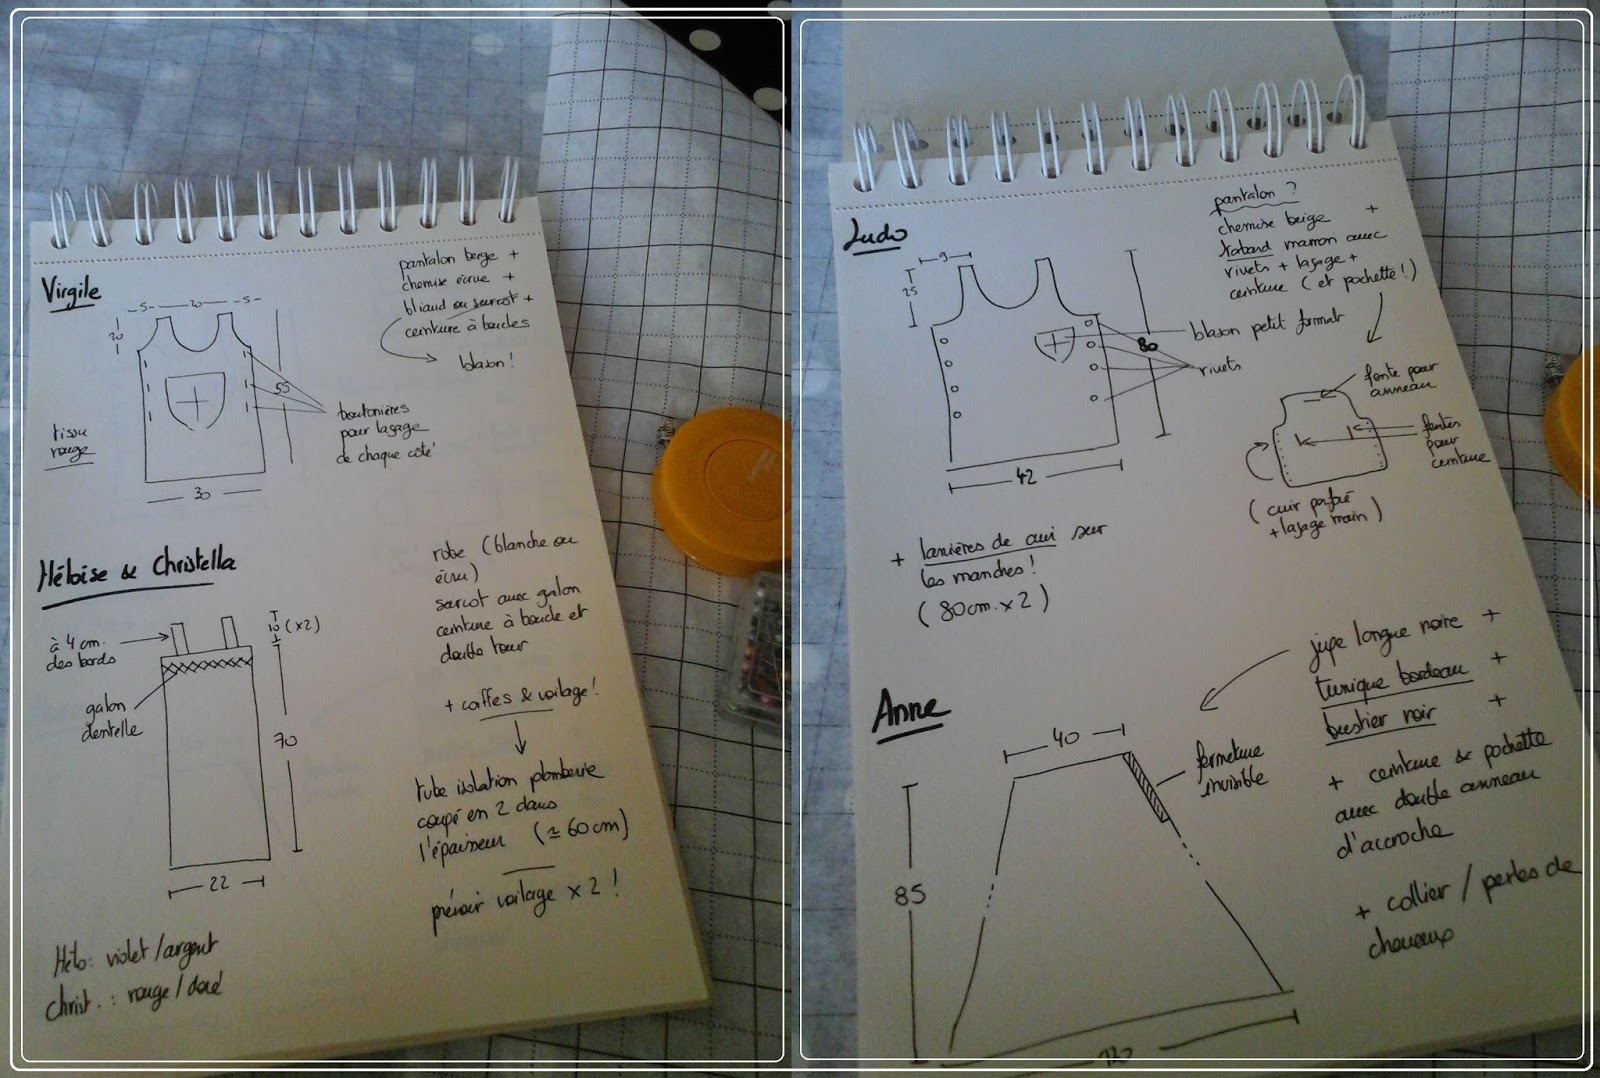 Virgile
-5- 20 -5-
20
55
30
tissu
rouge
pantalon beige +
chemise écrue +
bliaud ou surcot +
ceinture à boucles
blason !
boutonières
pour laçage
de chaque côté
Héloïse & Christella
à 4 cm
des bords
10 (x2)
galon
dentelle
70
22
robe (blanche ou
écru)
surcot avec galon
ceinture à boucle et
double tour
+ coiffes & voilage !
tube isolation plomberie
coupé en 2 dans
l'épaisseur (≃ 60 cm)
prévoir voilage x 2 !
Hélo : violet / argent
Christ. : rouge / doré
Ludo
9
25
80
42
pantalon ?
chemise beige +
tabard marron avec
rivets + laçage +
ceinture (et pochette !)
blason petit format
rivets
fente pour
anneau
fentes
pour
ceinture
(cuir perforé
+ laçage main)
+ lanières de cuir sur
les manches !
(80cm x 2)
Anne
40
85
130
fermeture
invisible
jupe longue noire +
tunique bordeau +
bustier noir +
+ ceinture & pochette
avec double anneau
d'accroche
+ collier / perles de
cheveux